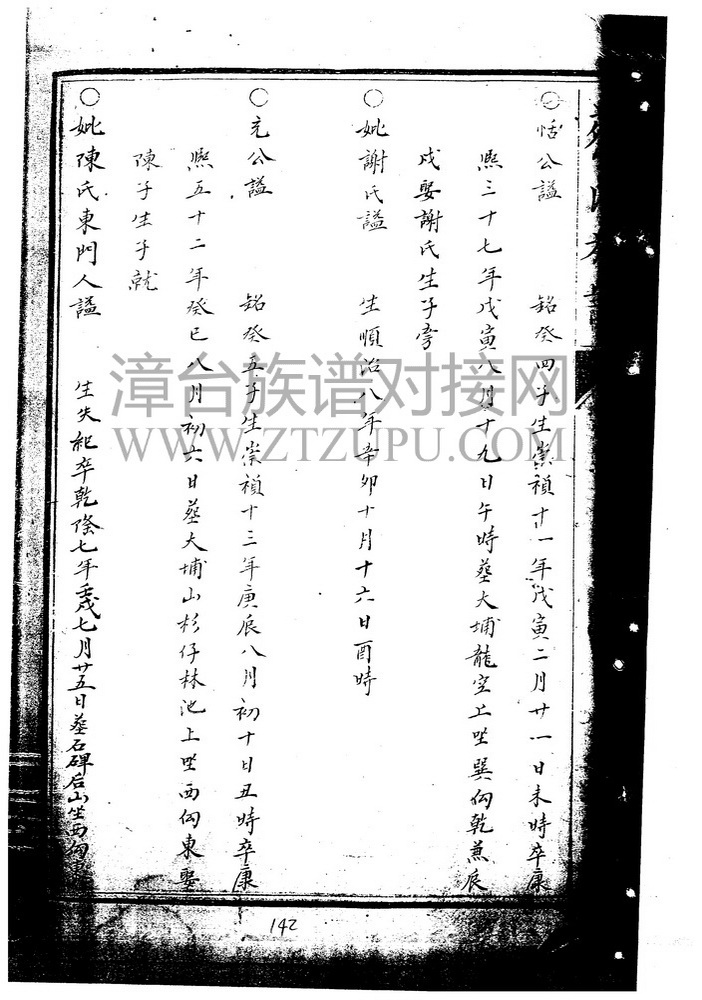 ○恬公謚　　銘癸四子生崇禎十一年戊寅二月廿一日未時卒康
熙三十七年戊寅八月十九日午時葬大埔龍空上坐巽向乾兼辰
戍娶謝氏生子旁
○妣謝氏謚　　生順治八年辛卯十月十六日酉時
○充公謚　　銘癸五子生崇禎十三年庚辰八月初十日丑時卒康
熙五十二年癸巳八月初六日葬大埔山杉仔林池上坐西向東娶
陳子生子就
○妣陳氏東門人謚　　生失紀卒乾隆七年壬戌七月廿五日葬石碑后山坐西向
142
漳台族谱对接网
WWW.ZTZUPU.COM